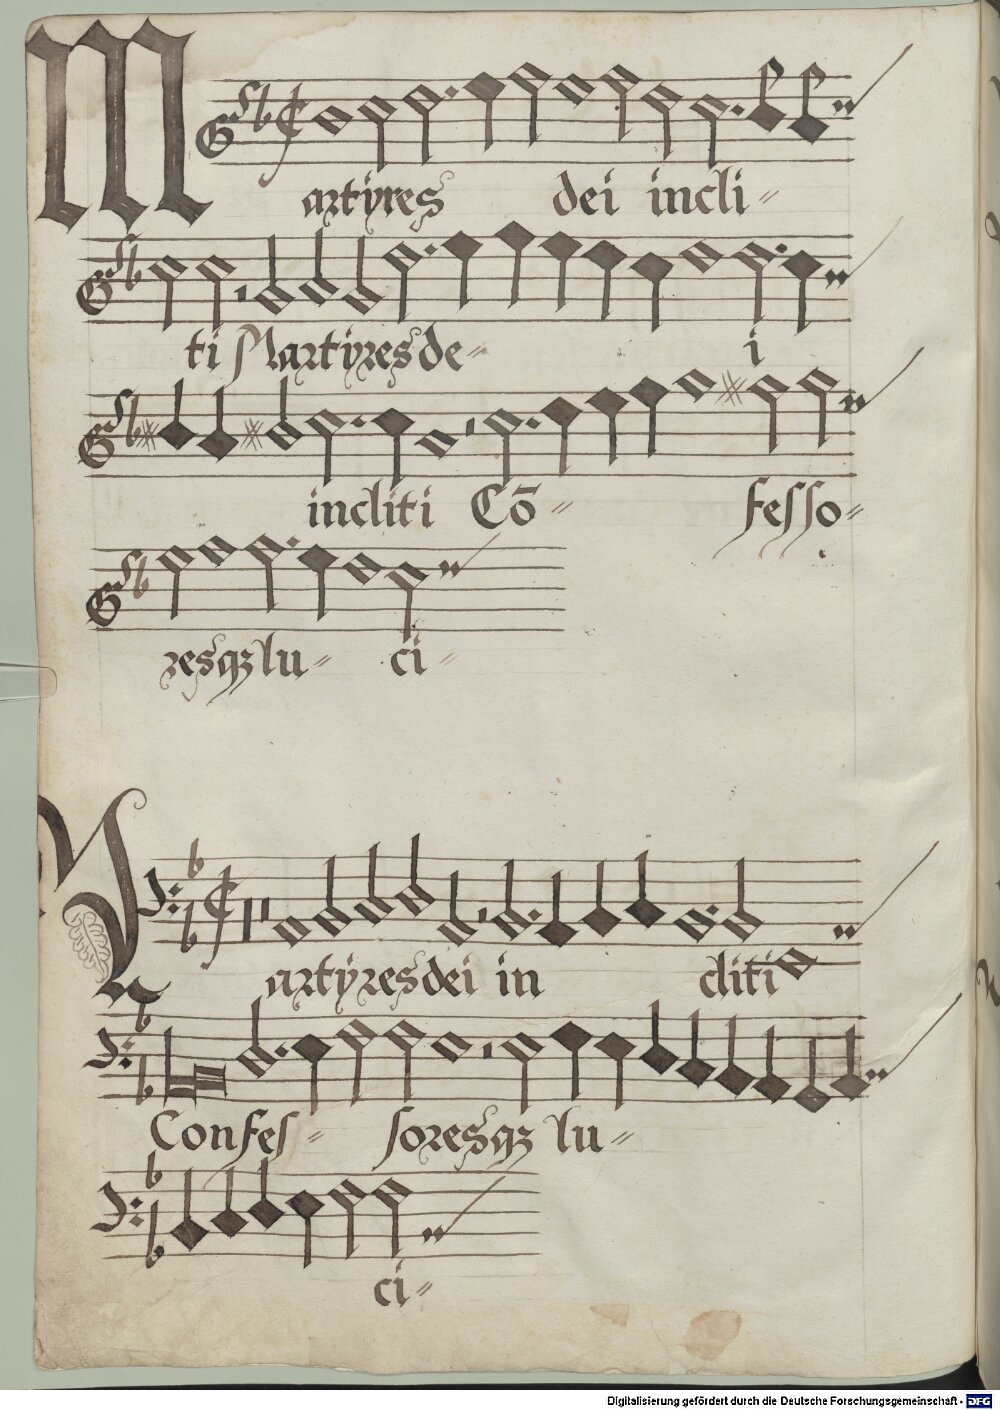 Martyres dei incli-
ti Martyres de- i
incliti Cō- fesso-
resqꝫ lu- ci-
Martyres dei in cliti
Confes- soresqꝫ lu-
ci-
Digitalisierung gefördert durch die Deutsche Forschungsgemeinschaft - DFG